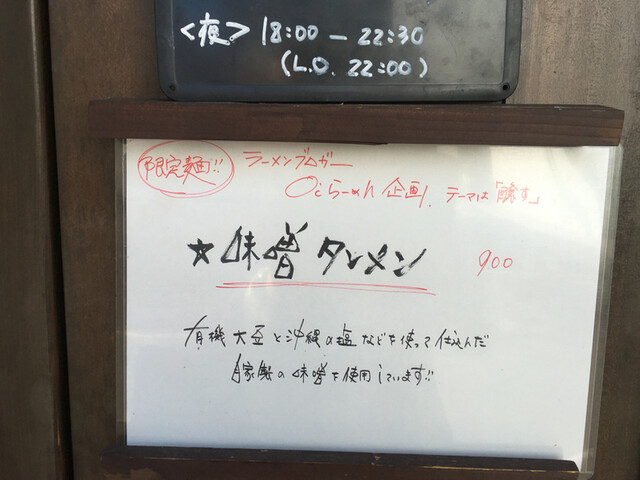 <夜> 18:00 － 22:30
(L.O. 22:00)
限定麺!! ラーメンブロガー
らーめん 企画、テーマは「醸す」
★味噌タンメン 900
有機大豆と沖縄の塩などを使って仕込んだ
自家製の味噌を使用しています!!